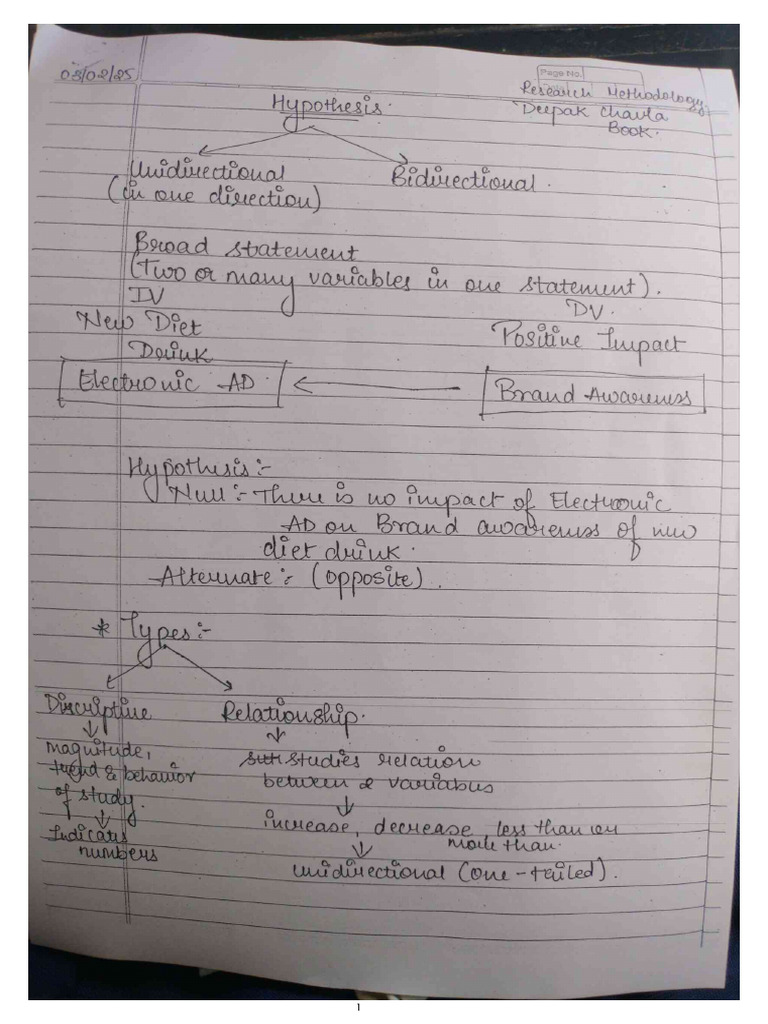 03/02/25
Page No.
Research Methodology
Deepak Chawla
Book.
Hypothesis.
Unidirectional
(in one direction)
Bidirectional.
Broad statement
(Two or many variables in one statement).
IV
DV.
New Diet
Drink
Positive Impact
Electronic AD.
Brand Awareness
Hypothesis:-
Null:- There is no impact of Electronic
AD on Brand awareness of new
diet drink.
Alternate:- (opposite).
* Types:-
Discriptive
Relationship.
magnitude,
trend & behavior
of study.
Indicates
numbers
studies relation
between 2 variables
increase, decrease, less than or
more than.
unidirectional (one-tailed).
1